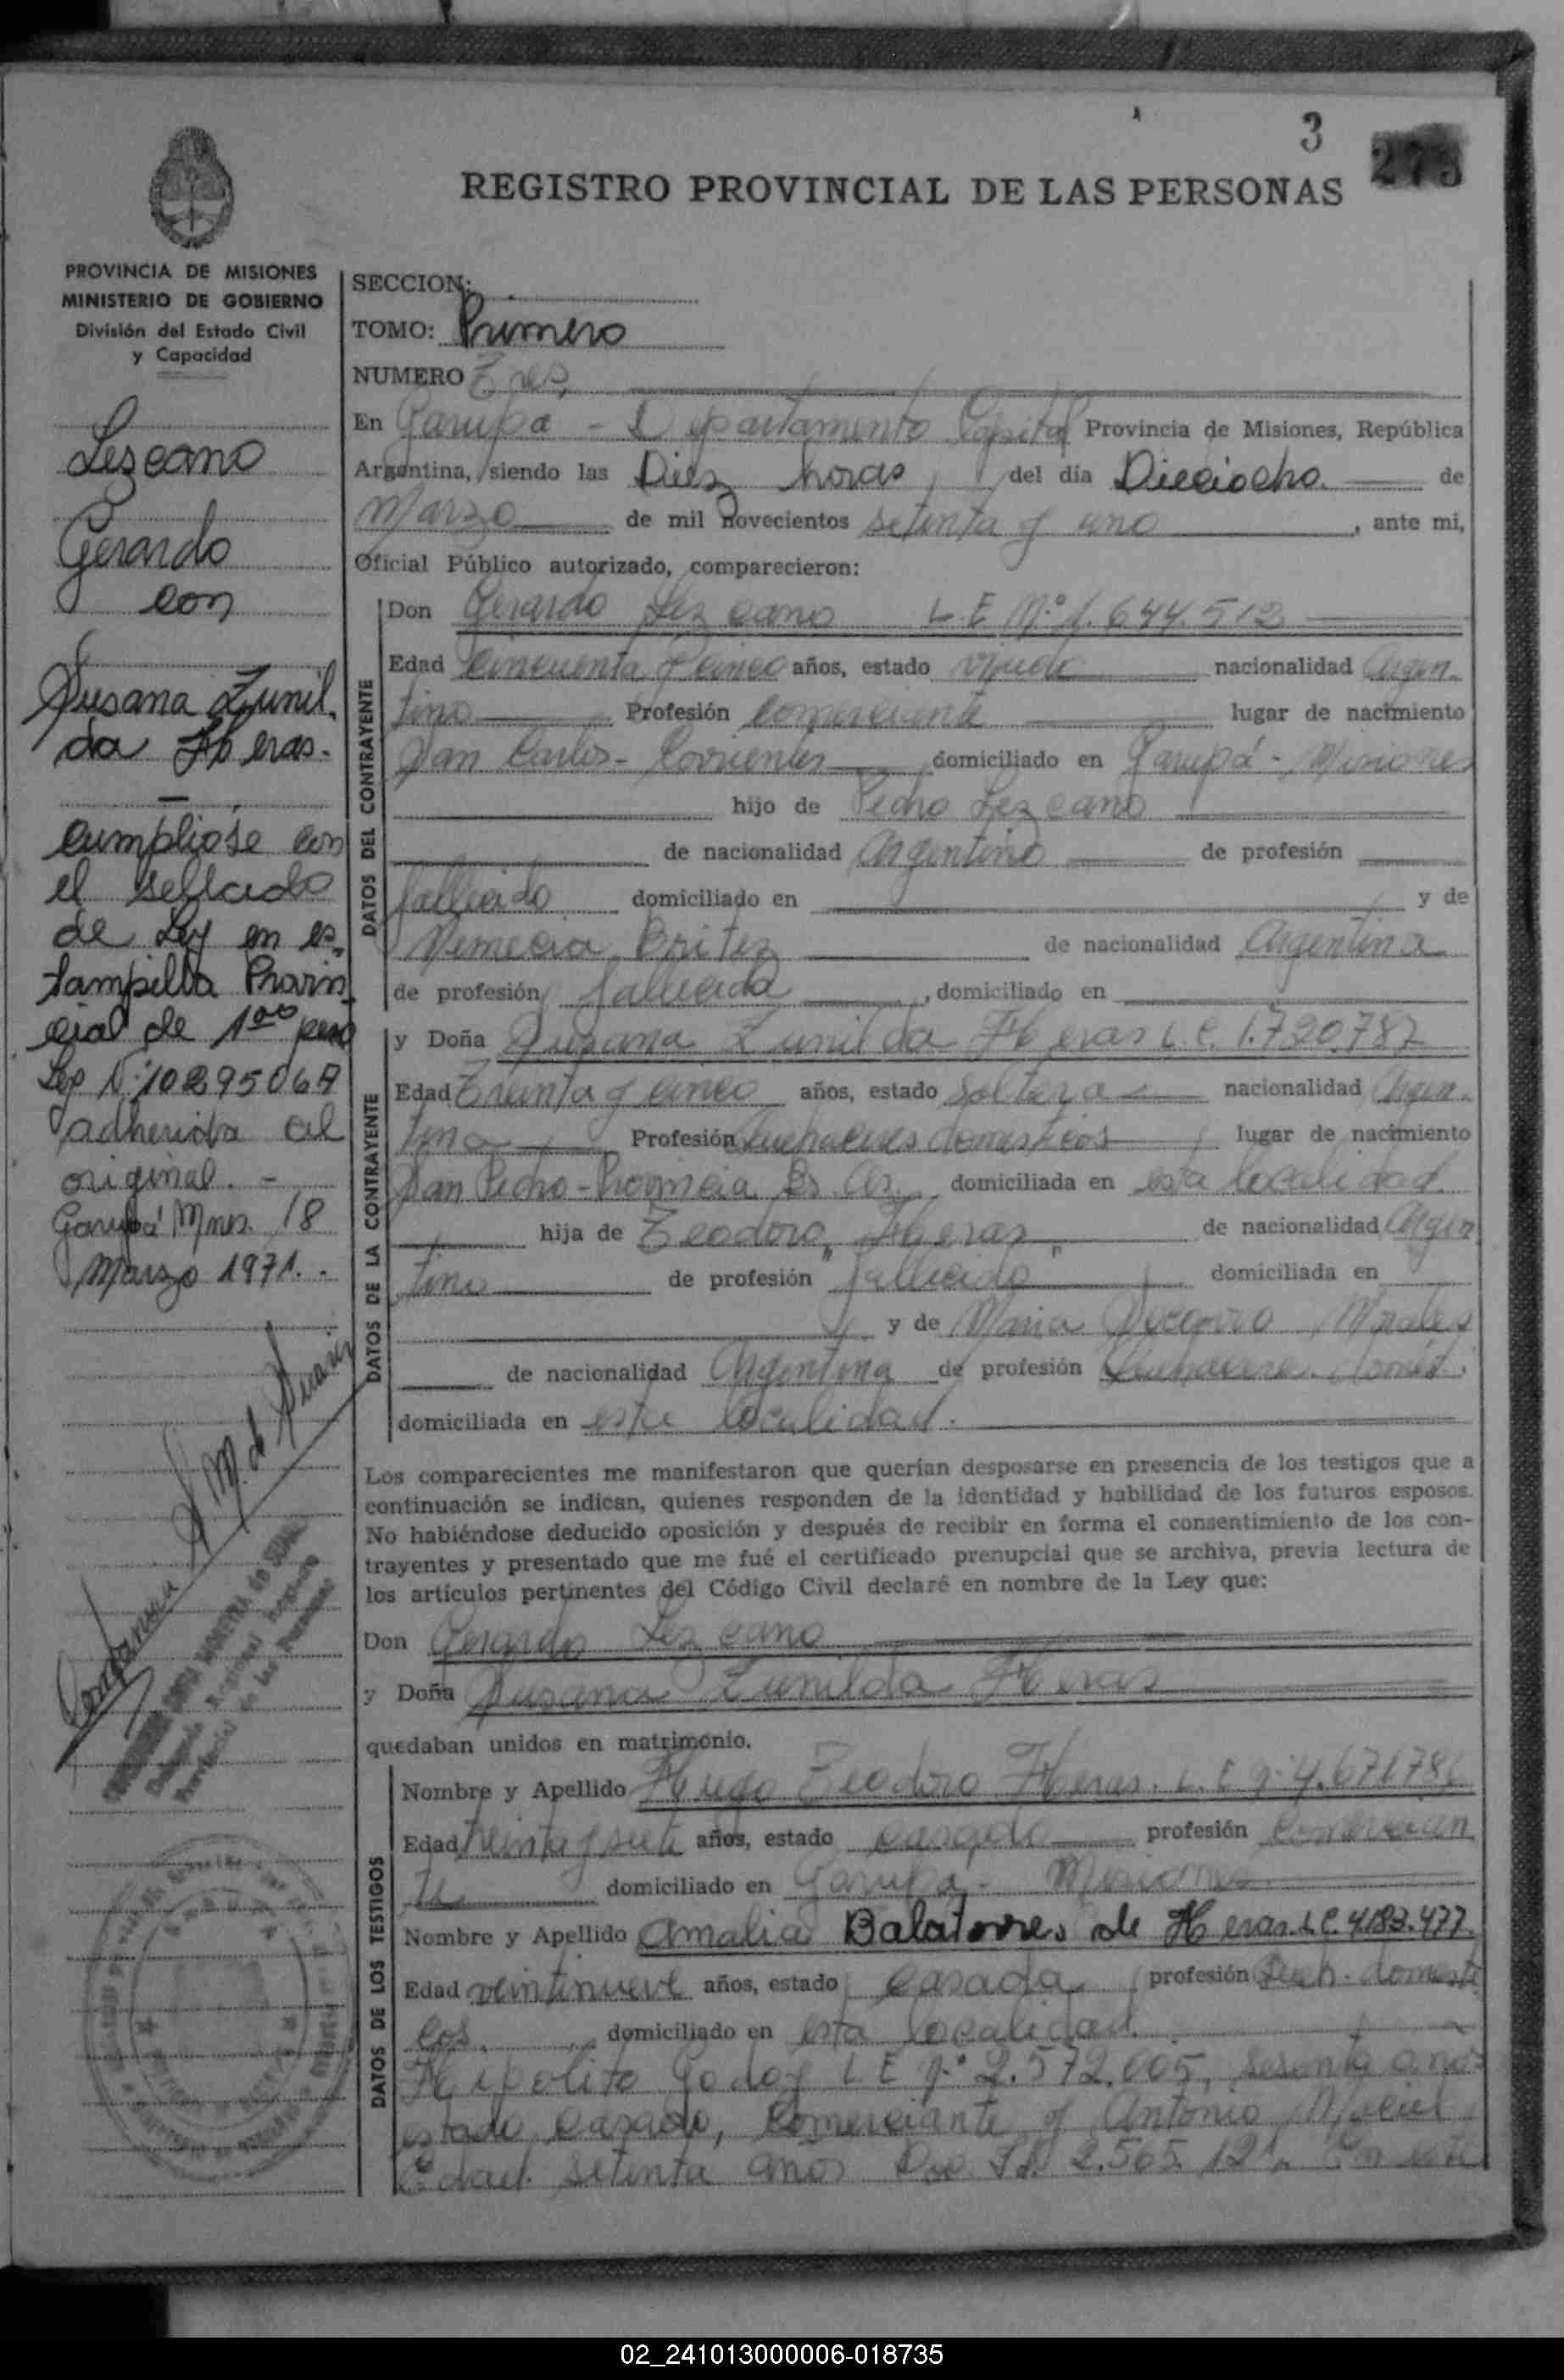 3
273
REGISTRO PROVINCIAL DE LAS PERSONAS
PROVINCIA DE MISIONES
MINISTERIO DE GOBIERNO
División del Estado Civil
y Capacidad
Lezcano
Gerardo
con
Susana Zunil-
da Heras.-
cumpliose con
el sellado
de Ley en es-
tampilla Provin
cial de 1oo peso
adherida al
original. -
Garupá Mnes. 18
Marzo 1971.-
SECCION:
TOMO: Primero
NUMERO Tres,
En Garupa - Departamento Capital Provincia de Misiones, República
Argentina, siendo las Diez horas, del día Dieciocho. de
Marzo de mil novecientos setenta y uno, ante mi,
Oficial Público autorizado, comparecieron:
DATOS DEL CONTRAYENTE
Don Gerardo Lezcano L.E Nº 1.644.512
Edad Cincuenta y cinco años, estado viudo nacionalidad Argen-
tino Profesión Comerciante lugar de nacimiento
San Carlos - Corrientes domiciliado en Garupá - Misiones
hijo de Pedro Lezcano
de nacionalidad Argentino de profesión
fallecido domiciliado en y de
Nemecia Britez de nacionalidad Argentina
de profesión fallecida, domiciliado en
DATOS DE LA CONTRAYENTE
y Doña Susana Zunilda Heras L.C. 1.720.787
Edad Treinta y cinco años, estado soltera nacionalidad Argen-
tina Profesión Quehaceres domesticos lugar de nacimiento
San Pedro - Provincia Bs. As. domiciliada en esta localidad
hija de Teodoro "Heras" de nacionalidad Argen
tino de profesión fallecido domiciliada en
y de Maria Socorro Morales
de nacionalidad Argentina de profesión domést.
domiciliada en esta localidad.
Los comparecientes me manifestaron que querían desposarse en presencia de los testigos que a
continuación se indican, quienes responden de la identidad y habilidad de los futuros esposos.
No habiéndose deducido oposición y después de recibir en forma el consentimiento de los con-
trayentes y presentado que me fué el certificado prenupcial que se archiva, previa lectura de
los artículos pertinentes del Código Civil declaré en nombre de la Ley que:
Don Gerardo Lezcano
y Doña Susana Zunilda Heras
quedaban unidos en matrimonio.
DATOS DE LOS TESTIGOS
Nombre y Apellido Hugo Teodoro Heras. L.E
Edad treinta y siete años, estado casado profesión Comercian
te domiciliado en Garupá - Misiones
Nombre y Apellido Amalia Balatorre de Heras L.C. 4.183.477
Edad veintinueve años, estado casada, profesión Queh. domesti
cos, domiciliado en esta localidad.
Hipolito Godoy L E Nº 2.572.005, sesenta años
estado casado, Comerciante y Antonio Maciel
Edad. setenta años
02_241013000006-018735